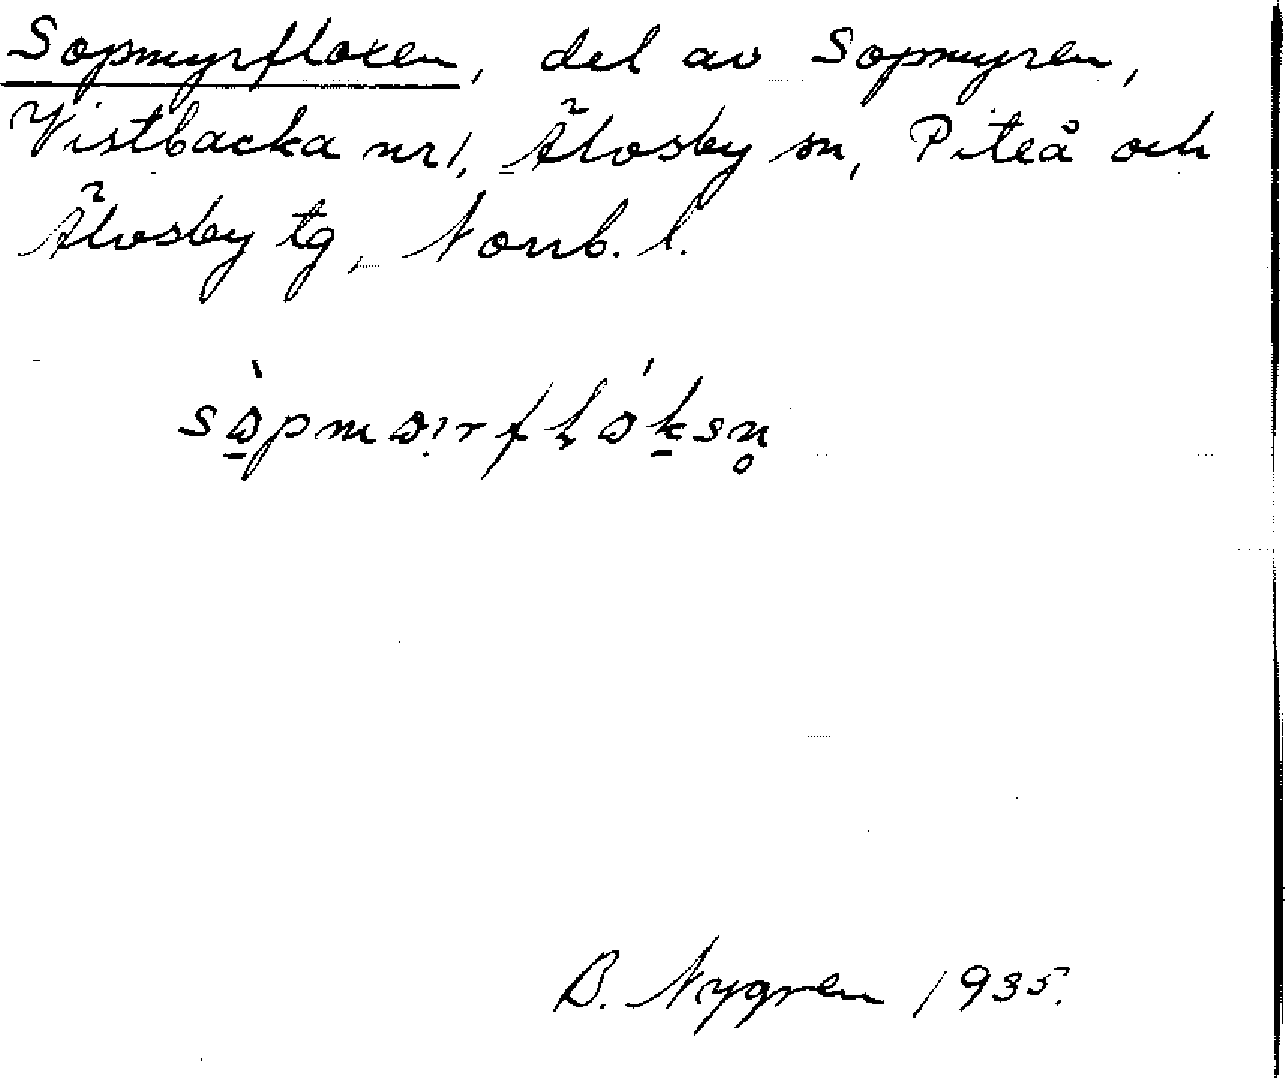 Sopmyrfloxen, del av Sopmyren,
Vistbacka nr 1, Älvsby sn, Piteå och
Älvsby tg, Norrb. l.
B. Nygren 1935.